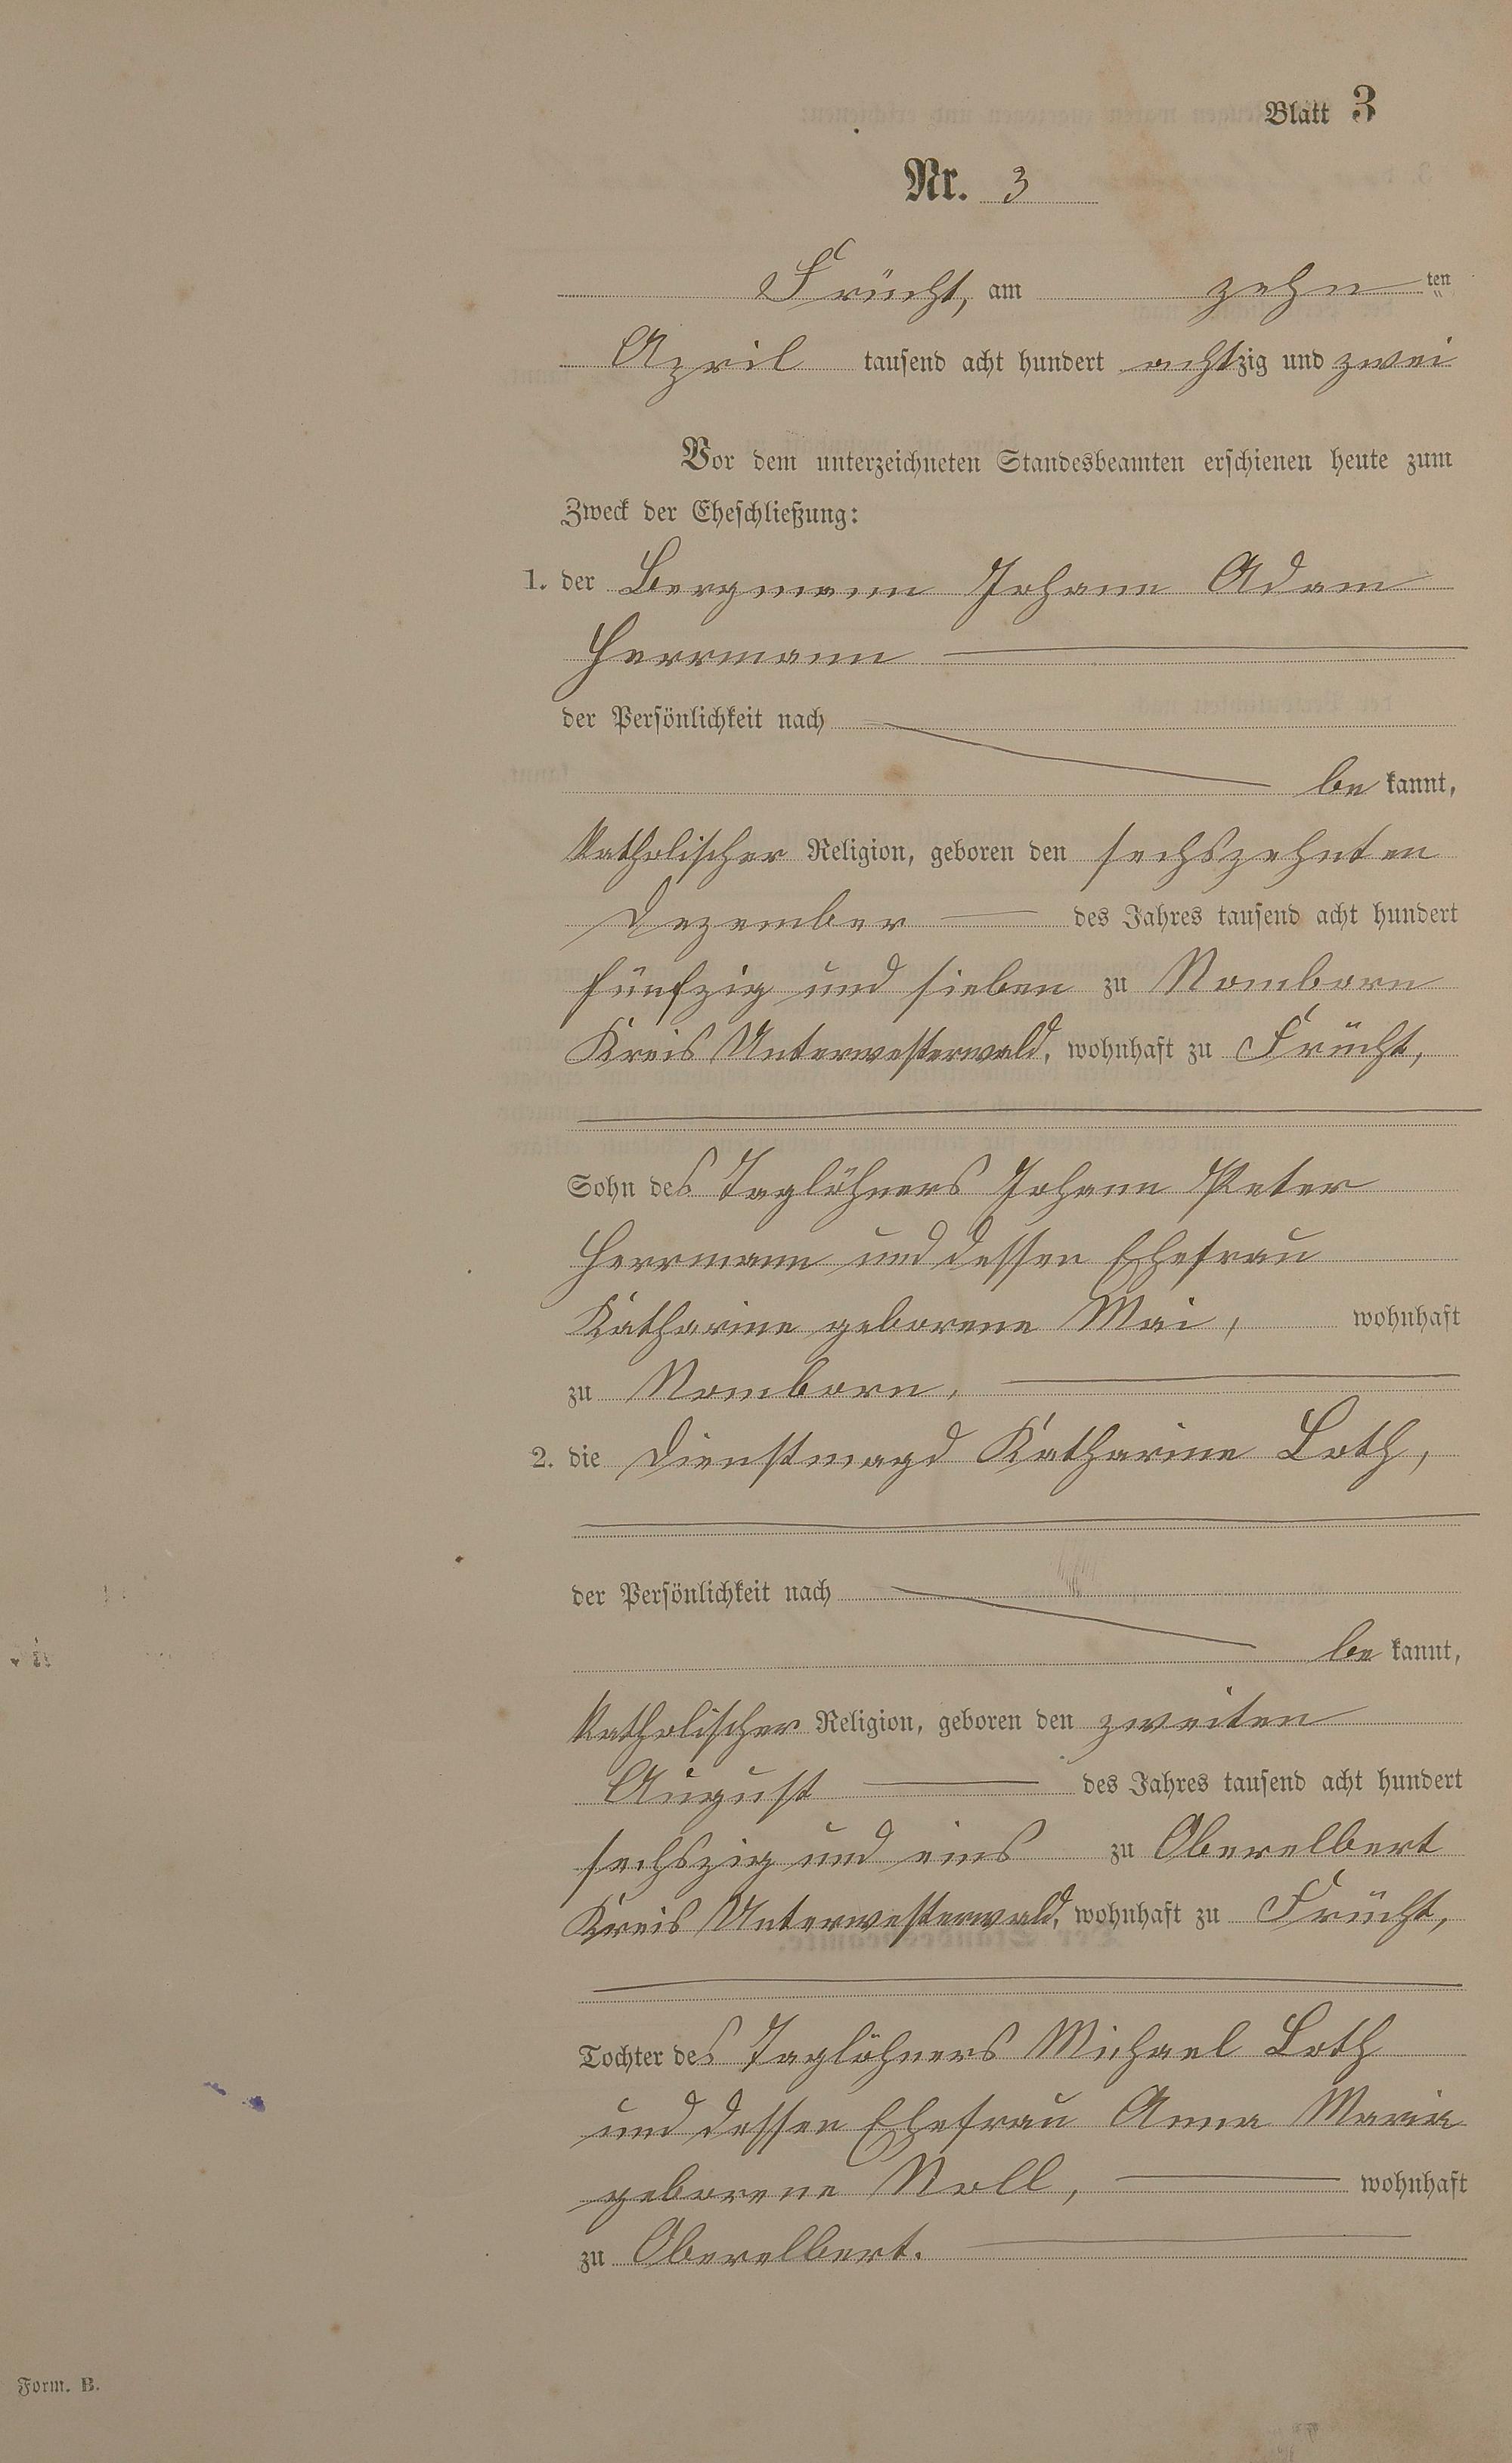 Blatt 3
Nr. 3
Frücht, am zehn ten
April tausend acht hundert achtzig und zwei
Vor dem unterzeichneten Standesbeamten erschienen heute zum
Zweck der Eheschließung:
1. der Bergmann Johann Adam
Herrmann
der Persönlichkeit nach
be kannt,
katholischer Religion, geboren den sechszehnten
Dezember des Jahres tausend acht hundert
fünfzig und sieben zu Nomborn
Kreis Unterwesterwald, wohnhaft zu Frücht,
Sohn des Taglöhners Johann Peter
Herrmann und dessen Ehefrau
Katharine geborene Mai, wohnhaft
zu Nomborn.
2. die Dienstmagd Katharine Loth,
der Persönlichkeit nach
be kannt,
katholischer Religion, geboren den zweiten
August des Jahres tausend acht hundert
sechszig und eins zu Oberelbert
Kreis Unterwesterwald, wohnhaft zu Frücht,
Tochter des Taglöhners Michael Loth
und dessen Ehefrau Anna Maria
geborene Noll, wohnhaft
zu Oberelbert.
Form. B.